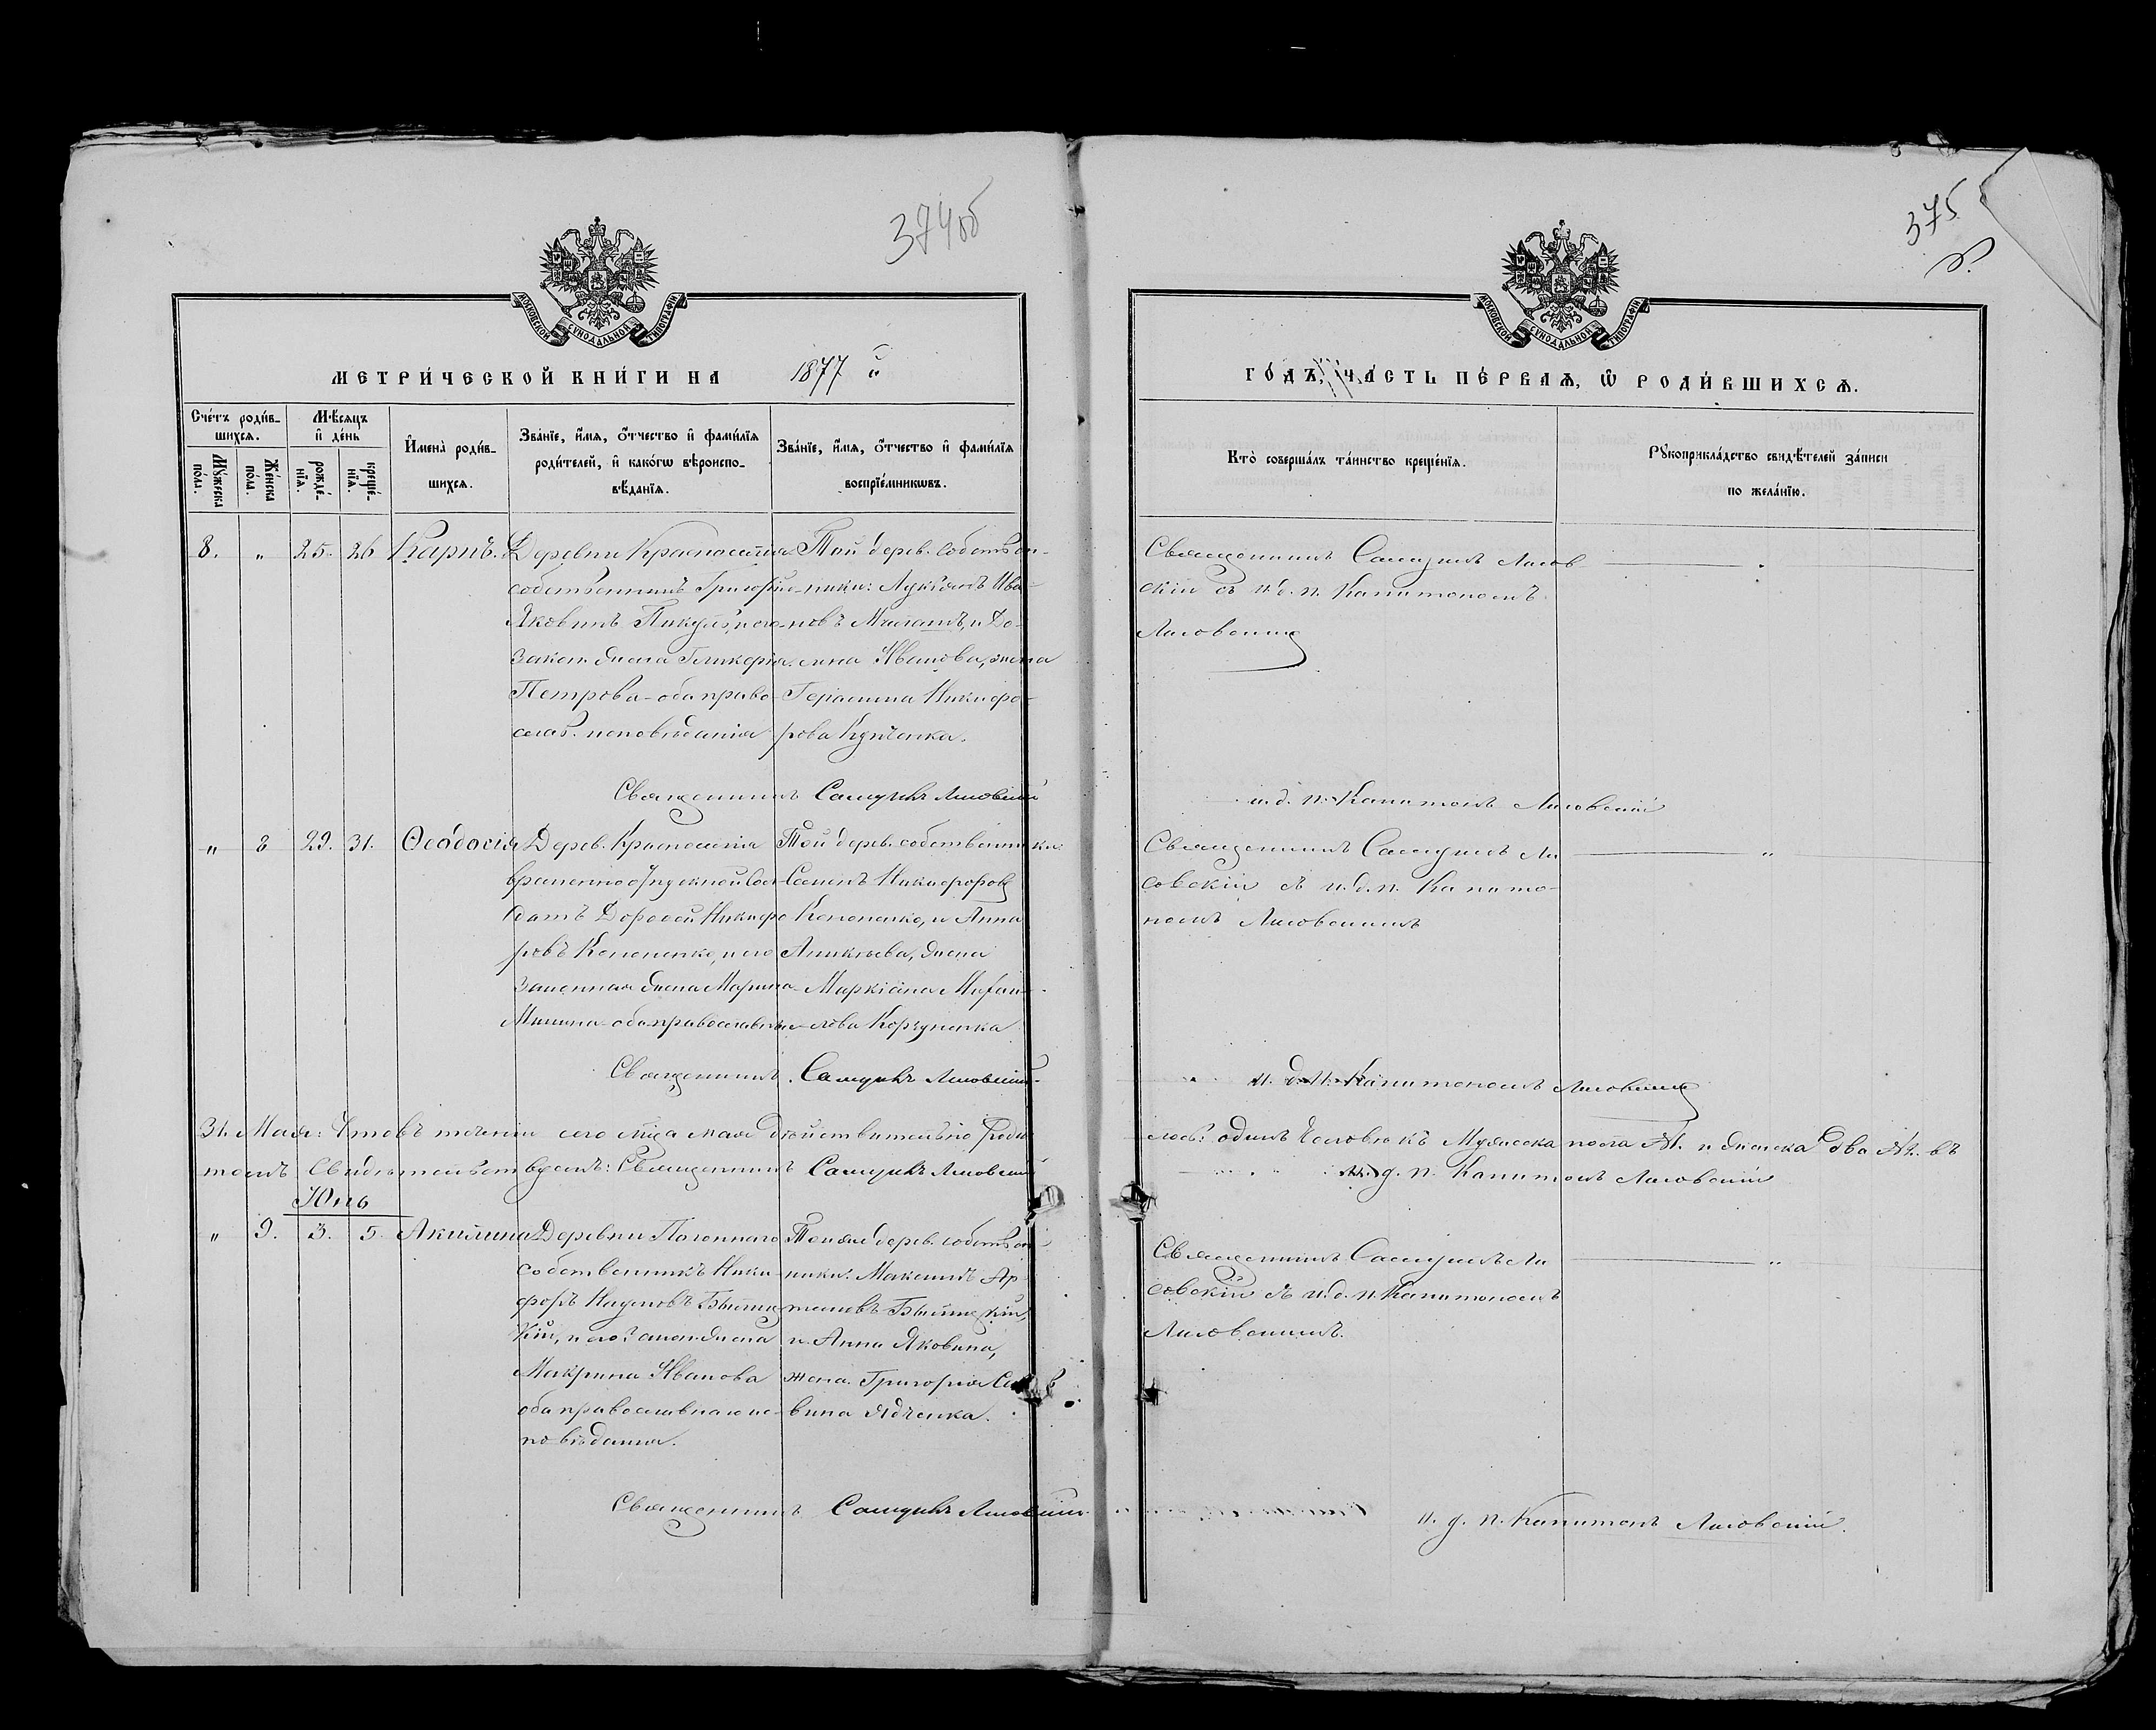 374об
375
МОСКОВСКОЙ СУНОДАЛЬНОЙ ТИПОГРАФІИ
МЕТРИ́ЧЕСКОЙ КНИ́ГИ НА 1877 й
Сче́тъ роди́в-
шихсѧ.
Мѣ́сѧцъ
и҆ де́нь
Мꙋ́жеска
по́ла.
Же́нска
по́ла.
рожде́-
нїѧ.
креще́-
нїѧ.
И҆мена̀ роди́в-
шихсѧ.
Зва́нїе, и҆́мѧ, ѻ҆́тчество и҆ фами́лїѧ
роди́телей, и҆ како́гѡ вѣроиспо-
вѣ́данїѧ.
Зва́нїе, и҆́мѧ, ѻ҆́тчество и҆ фами́лїѧ
воспрїе́мникѡвъ.
8. " 25. 26 Карпъ.
Деревни
собственникъ Григорій
Яковинъ
закон. жена Гликерія
Петрова - оба право-
слав. исповѣданія
Той дерев. собствен-
ники: Лукіянъ Ива-
новъ
Иванова, жена
Герасима Никифо-
рова
Священникъ Самуилъ Лисовскій
" 8 29. 31. Ѳеодосія
Дерев.
временно отпускной Сол-
датъ Дороѳей Никифо
ровъ Кононенко, и его
законная жена Марина
оба православные
Той дерев. собственники:
Семенъ Никифоровъ
Кононенко, и Анна
жена
Маркіана Михаи-
лова
Священникъ Самуилъ Лисовскій
31. Мая: Что въ теченіи сего м͠ца мая дѣйствительно роди
томъ свидѣтельствуемъ: Священникъ Самуилъ Лисовскій
Юнь
" 9. 3. 5. Акилина
Деревни
собственникъ Ники-
форъ Наумовъ
кій, и его закон. жена
Макрина Иванова
оба православнаго ис-
повѣданія.
Той же дерев. собствен
ники: Максимъ Ар-
темовъ
и Анна Яковина,
жена Григорія
Священникъ Самуилъ Лисовскій
МОСКОВСКОЙ СУНОДАЛЬНОЙ ТИПОГРАФІИ
ГО́ДЪ, ЧА́СТЬ ПЕ́РВАѦ, Ѽ РОДИ́ВШИХСѦ.
Кто̀ соверша́лъ та́инство креще́нїѧ.
Рꙋкоприкла́дство свидѣ́телей за́писи
по жела́нїю.
Священникъ Самуилъ Лисов
скій съ и. д. п. Капитономъ
Лисовскимъ
и. д. п. Капитонъ Лисовскій
Священникъ Самуилъ Ли
совскій съ и. д. п. Капито-
номъ Лисовскимъ
и. д. п. Капитономъ Лисовскимъ
лось: одинъ человѣкъ Мужеска пола №1. и женска два №2. въ
и. д. п. Капитонъ Лисовскій
Священникъ Самуилъ Ли
совскій съ и. д. п. Капитономъ
Лисовскимъ.
и. д. п. Капитонъ Лисовскій.